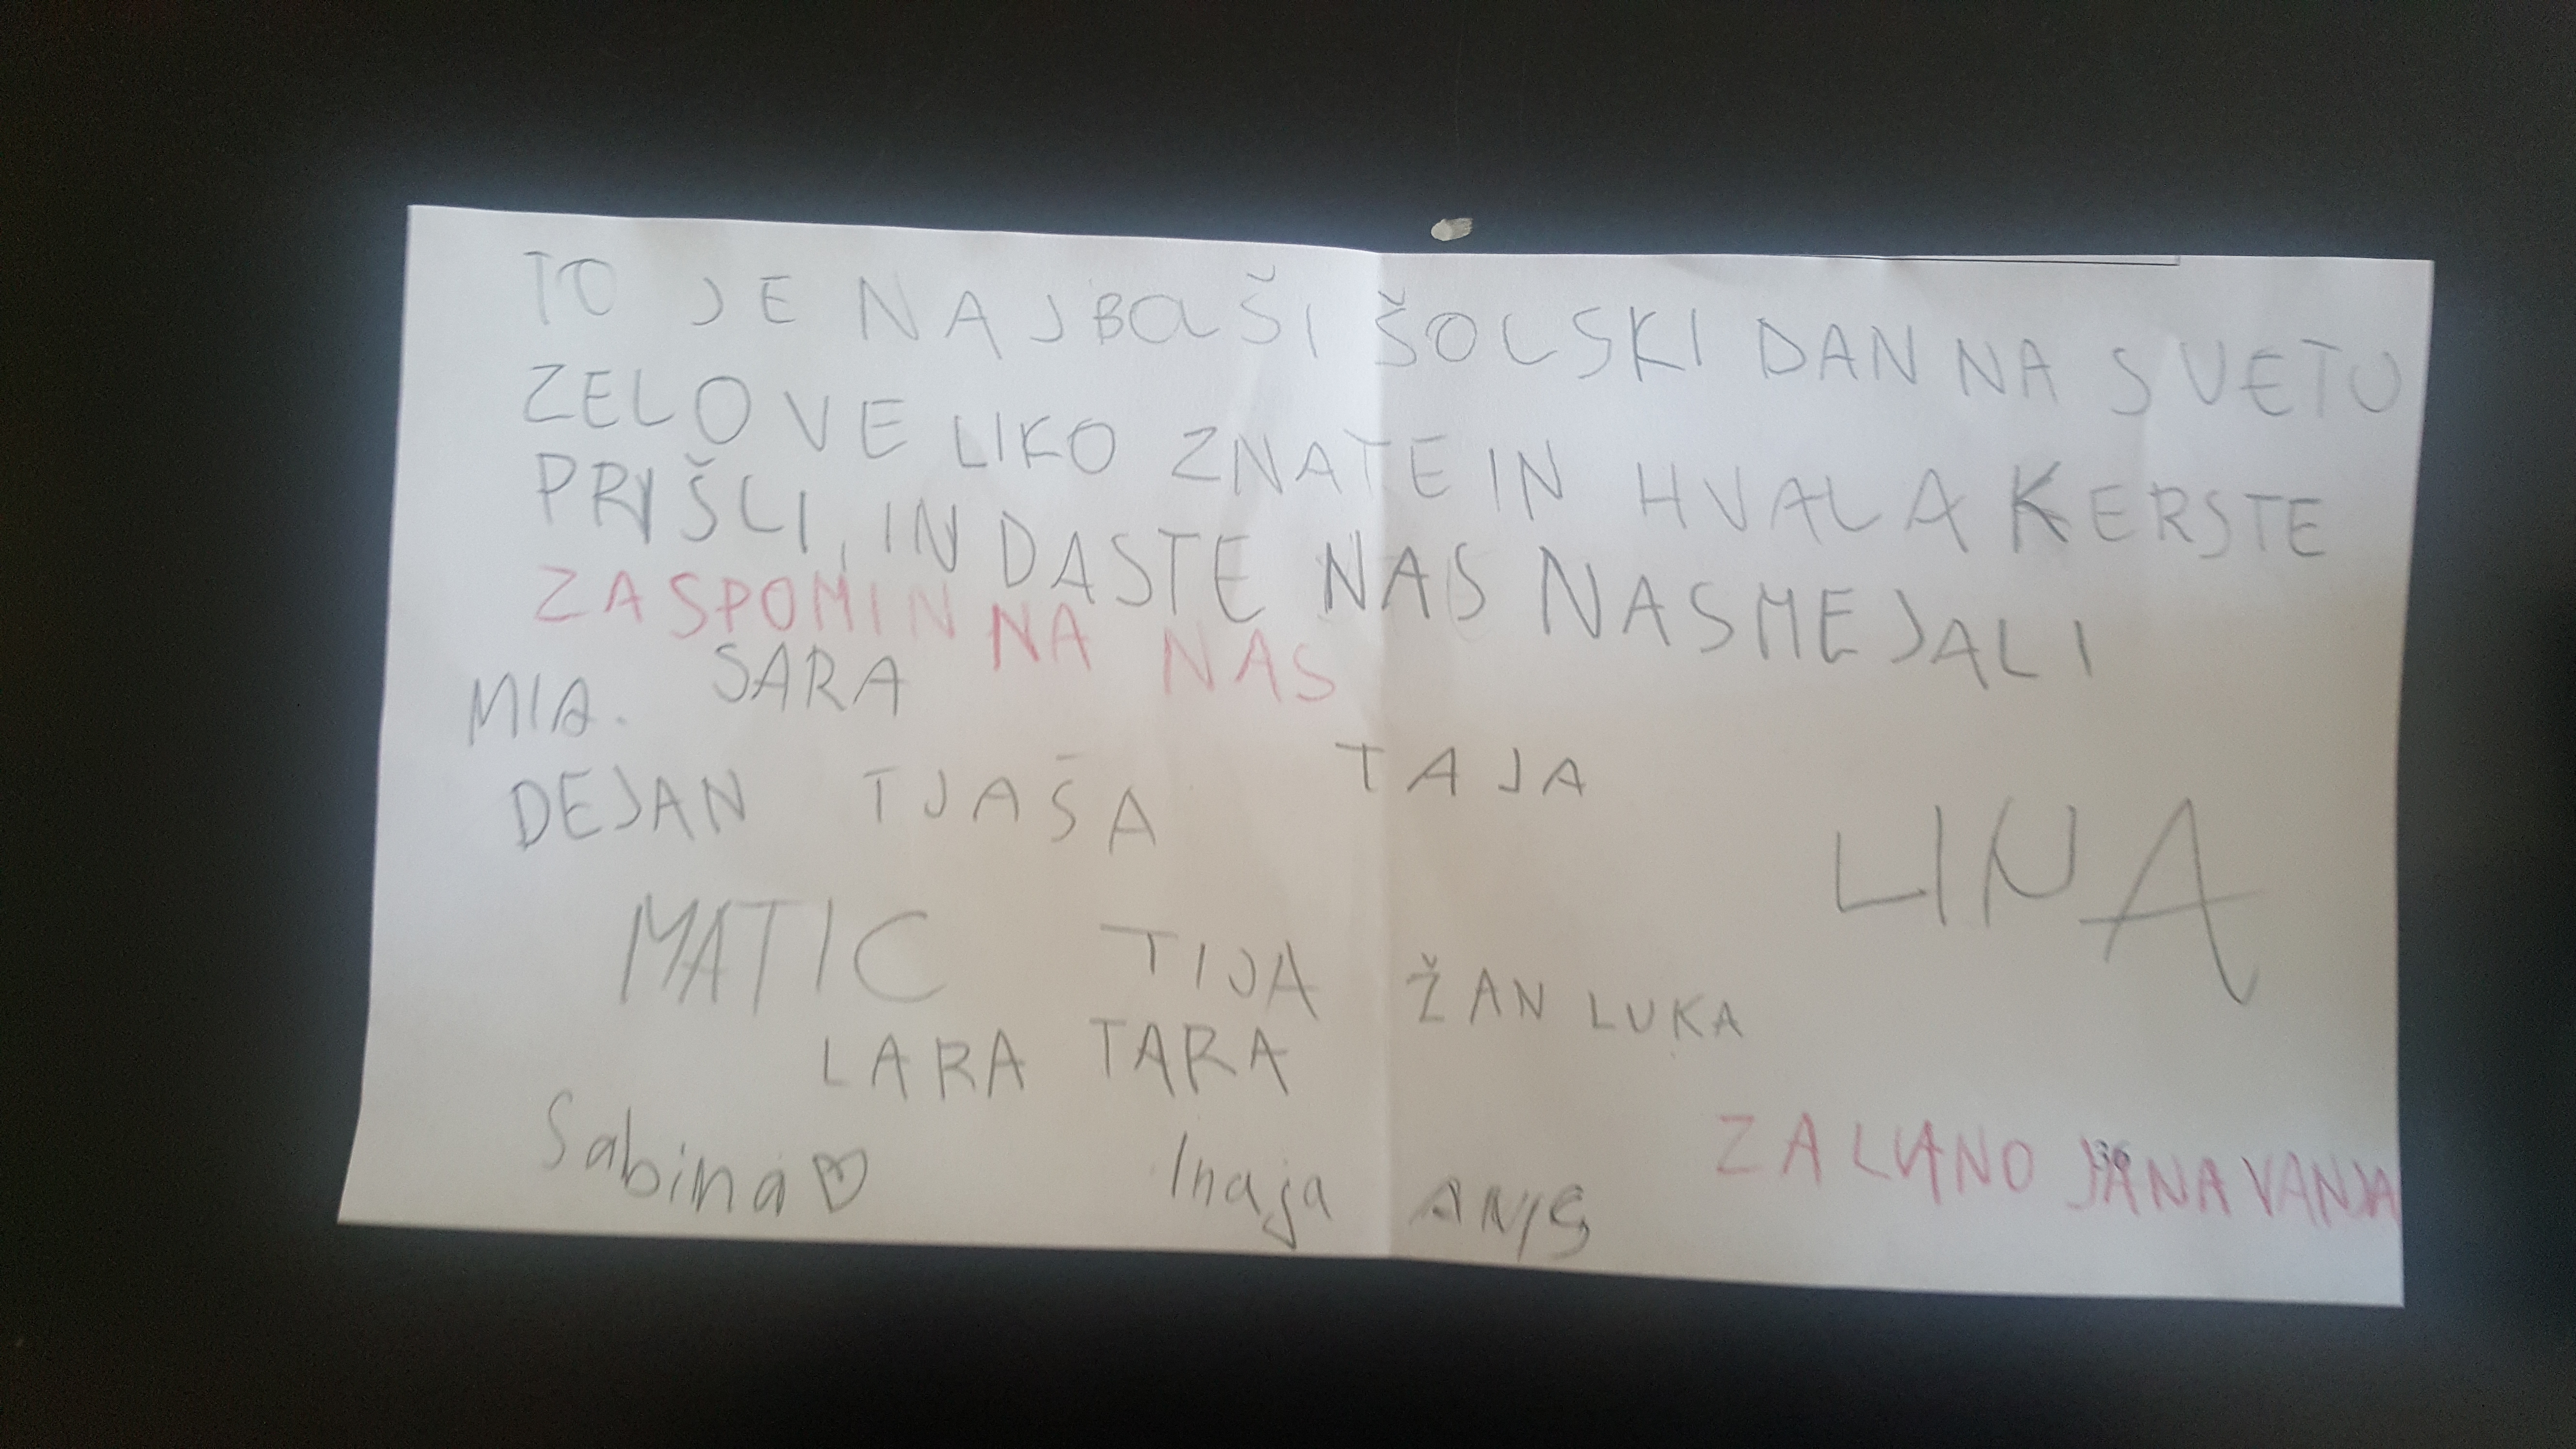 TO JE NAJBOLŠI ŠOLSKI DAN NA SVETU
ZELO VELIKO ZNATE IN HVALA KERSTE
PRIŠLI, IN DASTE NAS NASMEJALI
ZA SPOMIN NA NAS
MIA. SARA
DEJAN TJAŠA TAJA
LINA
MATIC TIJA ŽAN LUKA
LARA TARA
Sabina Inaja ANIS
ZA JANA VANJA